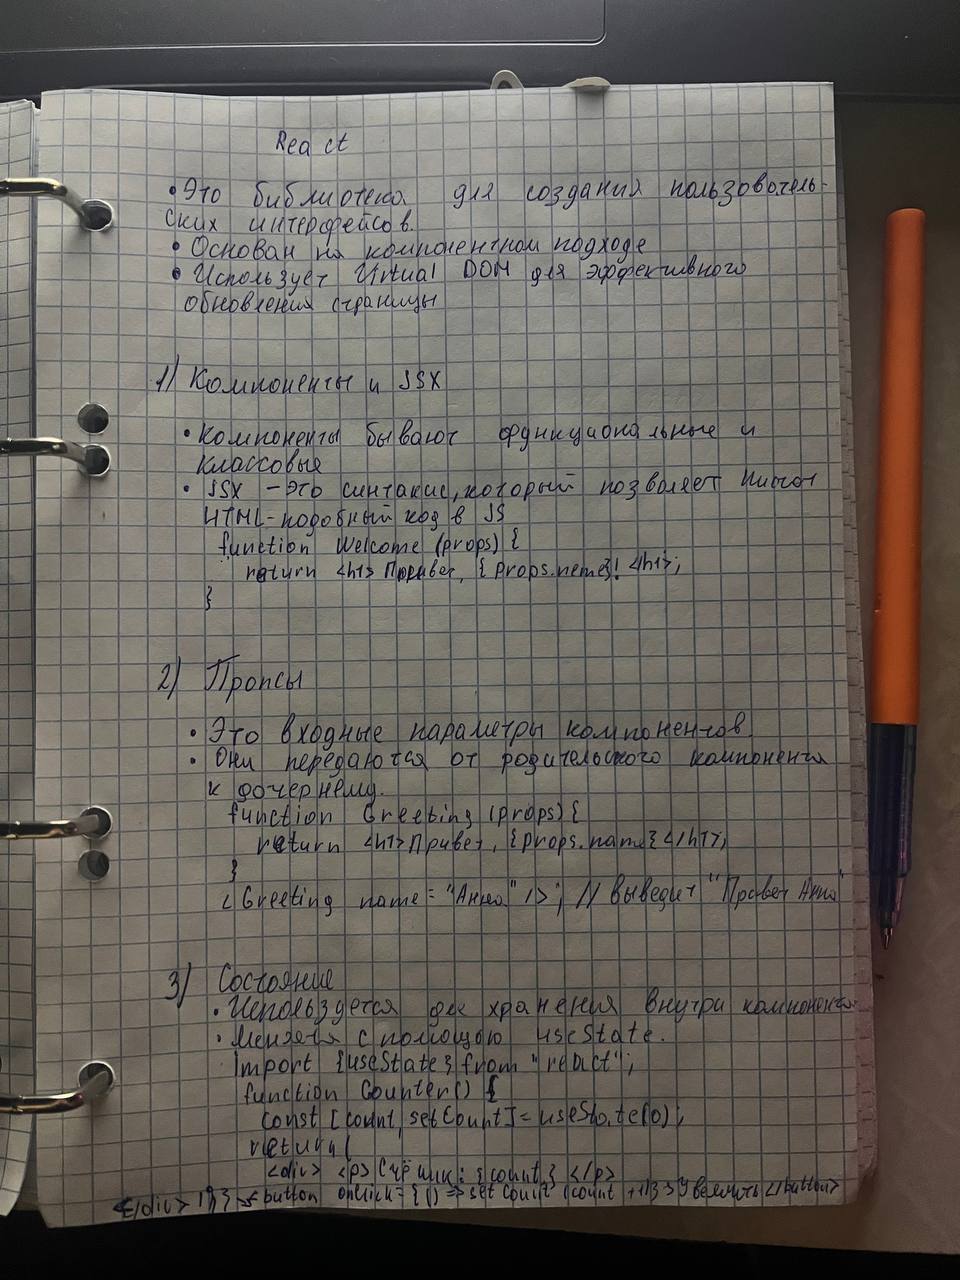 React
• Это библиотека для создания пользователь-
ских интерфейсов.
• Основан на компонентном подходе
• Использует Virtual DOM для эффективного
обновления страницы
1) Компоненты и JSX
• Компоненты бывают функциональные и
классовые
• JSX – это синтаксис, который позволяет писать
HTML-подобный код в JS
function Welcome (props) {
return <h1> Привет, {props.neme}! </h1>;
}
2) Пропсы
• Это входные параметры компонентов.
• Они передаются от родительского компонента
к дочернему.
function Greeting (props) {
return <h1> Привет, {props.name} </h1>;
}
<Greeting name = "Анна" />; // выведит "Привет Анна"
3) Состояние
• Используется для хранения внутри компонента
• Меняется с помощью useState.
import {useState} from "react";
function Counter() {
const [count, setCount] = useState(0);
return (
<div> <p> Счётчик: {count} </p>
</div> )} <button onClick = { () => setCount (count +1)} > Увеличить </button>